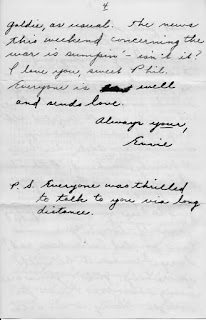 4
goldie, as usual. The news
this weekend concerning the
war is sumpin' - isn't it?
I love you, sweet Phil.
Everyone is well
and sends love.
Always your,
Ernie
P.S. Everyone was thrilled
to talk to you via long
distance.